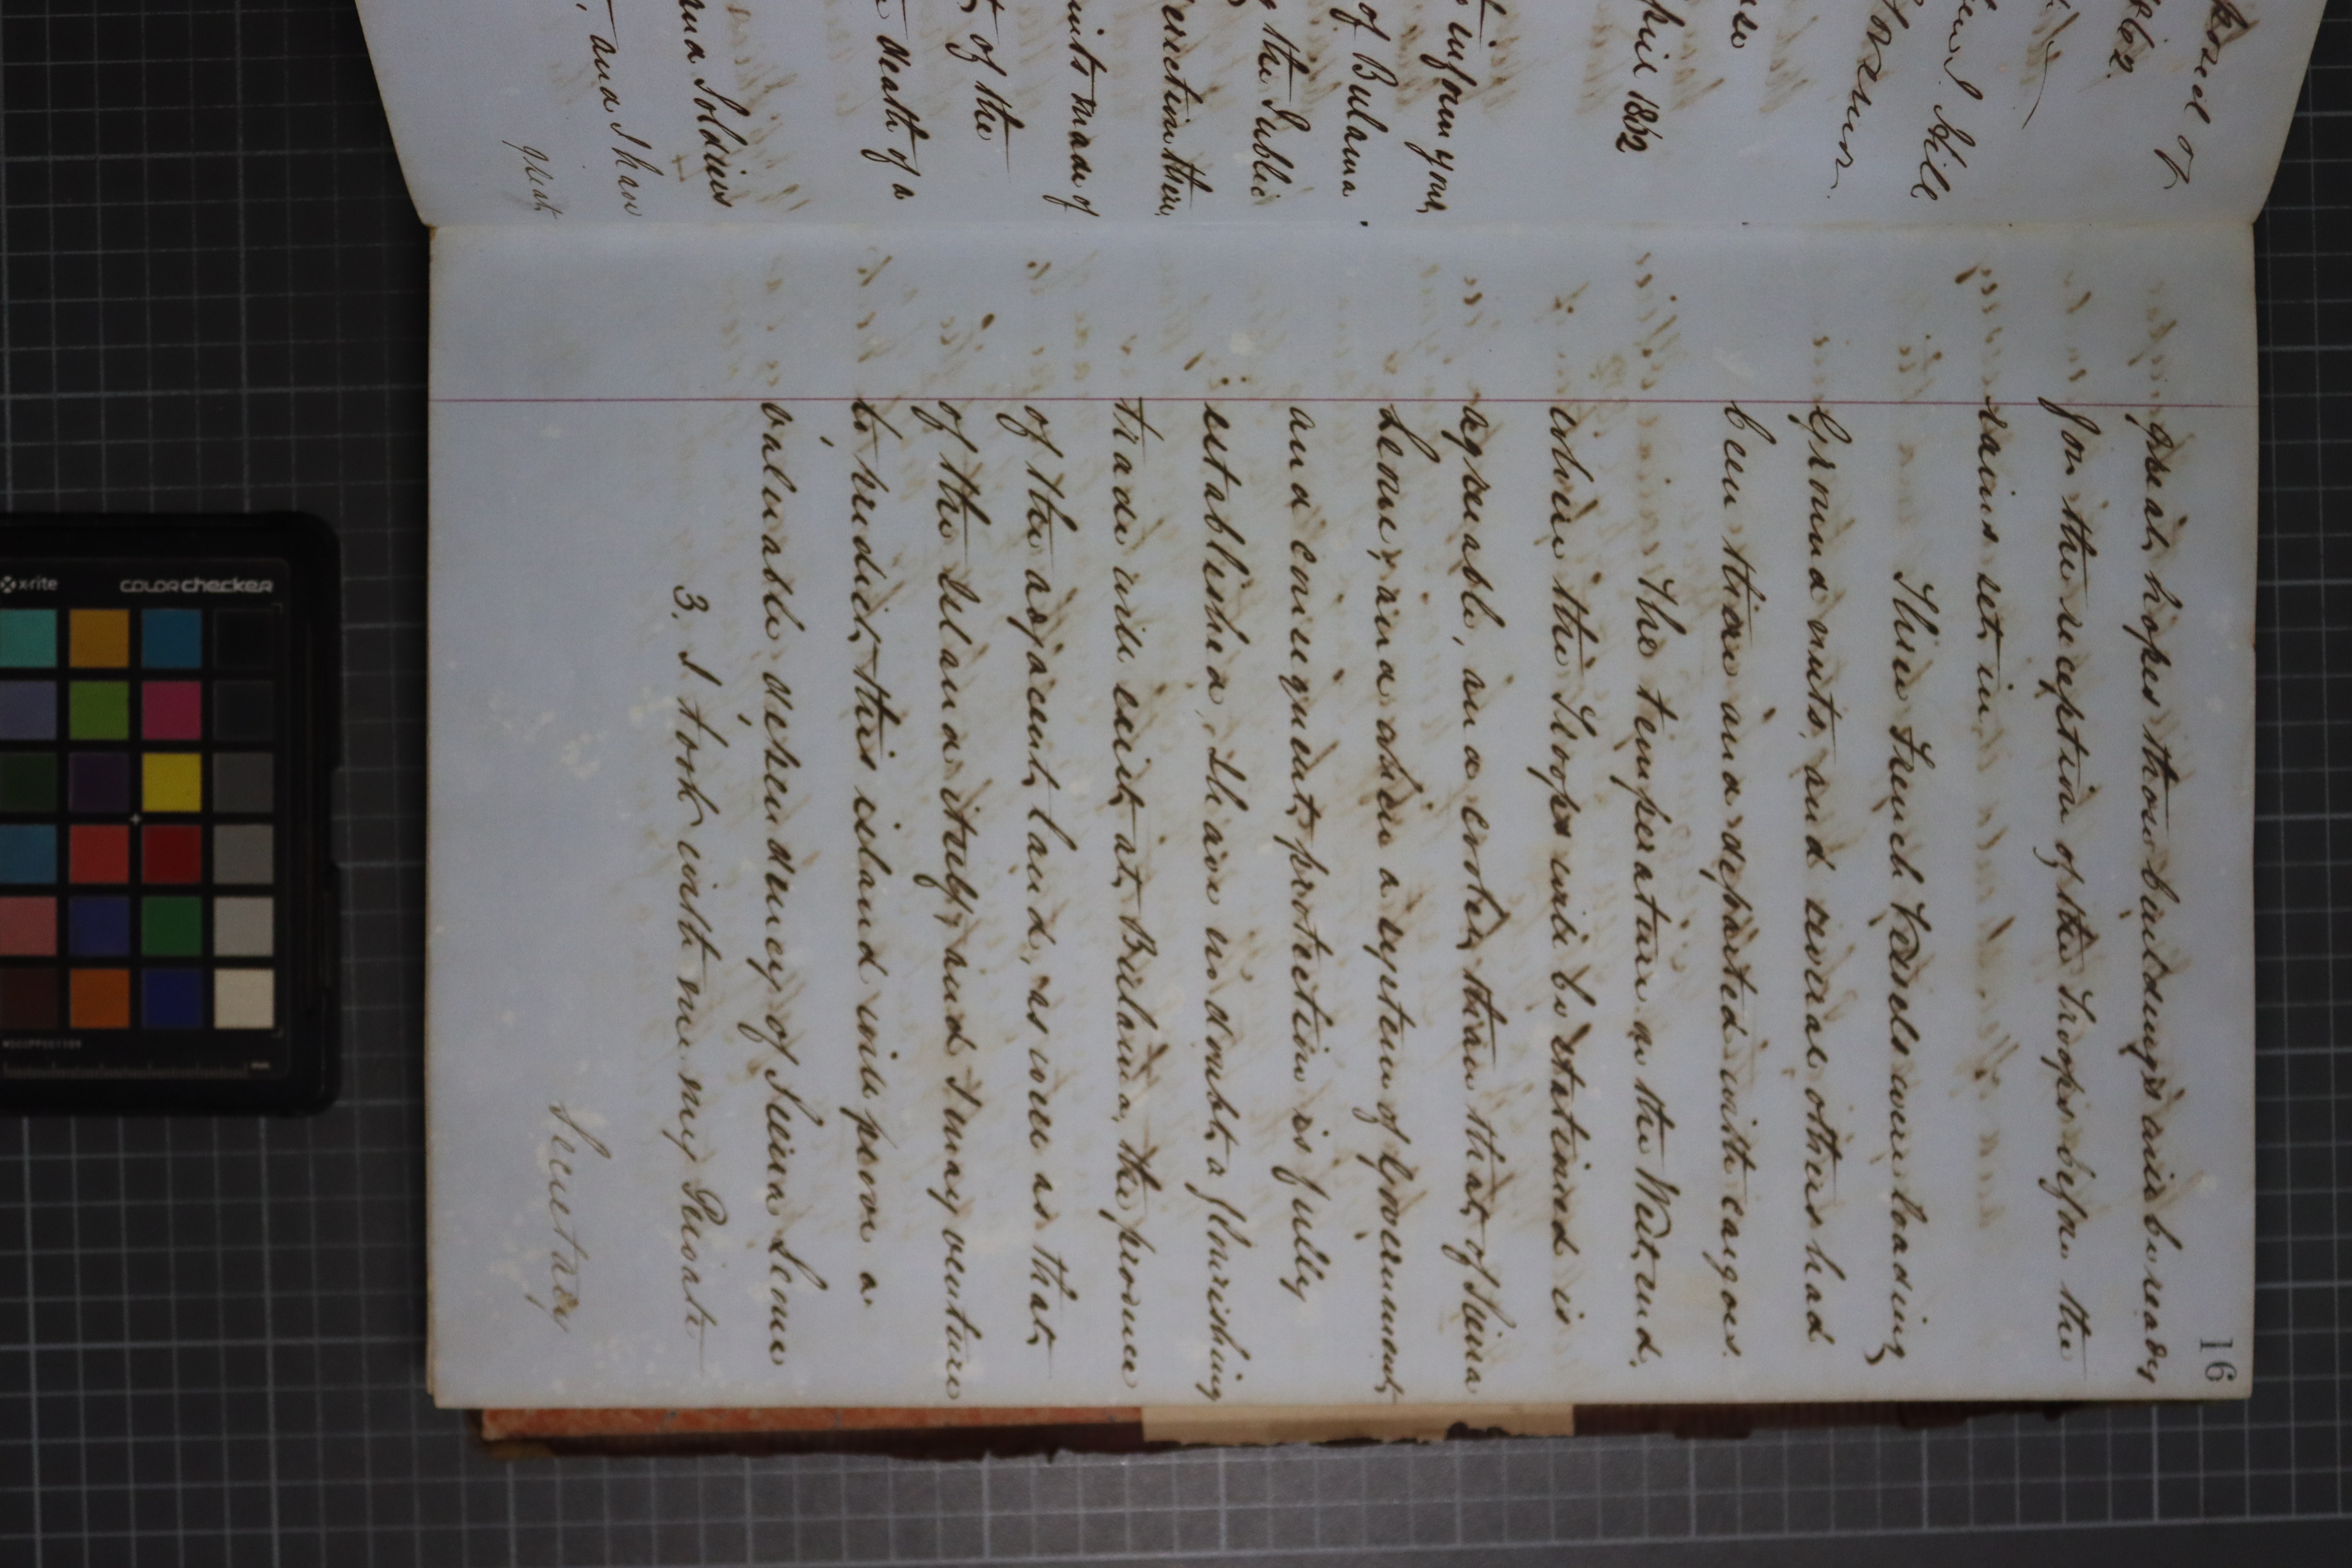 posed of
1862.
Hill
pril 1862
t inform your
of Bulama
g the Public
erection there,
made of
t of the
death of a
and Soldiers
, and I have
great
16
great hopes those buildings will be ready
for the reception of the troops before the
rains set in.
Three French Vessels were loading
Ground nuts, and several others had
been there and departed with cargoes.
The temperature at the West end.
where the Troops will be stationed is
agreeable, and cooler than that of Sierra
Leone, and when a system of Government,
and consequent protection is fully
established, there is no doubt a flourishing
trade will exist at Bulama, the produce
of the adjacent land, as well as that
of the Island itself, and I may venture
to predict this island will prove a
valuable dependency of Sierra Leone
3. I took with me my Private
Secretary
x-rite
colorchecker